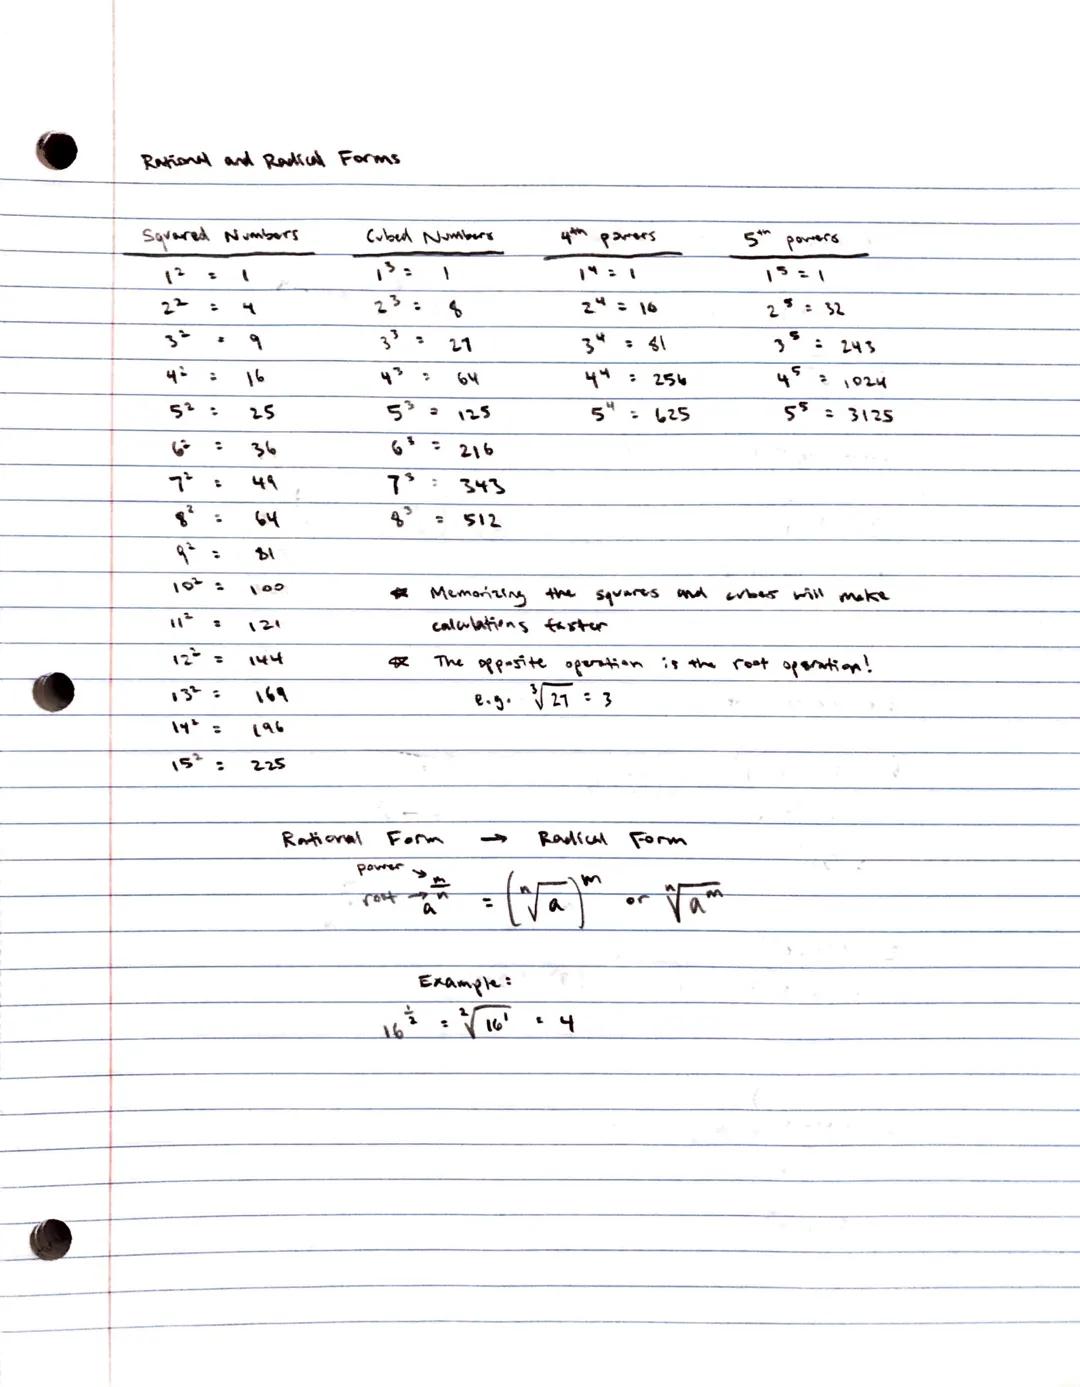 Rational and Radical Forms
Squared Numbers Cubed Numbers 4th powers 5th powers
1² = 1 1³ = 1 1⁴ = 1 1⁵ = 1
2² = 4 2³ = 8 2⁴ = 16 2⁵ = 32
3² = 9 3³ = 27 3⁴ = 81 3⁵ = 243
4² = 16 4³ = 64 4⁴ = 256 4⁵ = 1024
5² = 25 5³ = 125 5⁴ = 625 5⁵ = 3125
6² = 36 6³ = 216
7² = 49 7³ = 343
8² = 64 8³ = 512
9² = 81
10² = 100 * Memorizing the squares and cubes will make
11² = 121 calculations faster
12² = 144 * The opposite operation is the root operation!
13² = 169 e.g. ³√27 = 3
14² = 196
15² = 225
Rational Form → Radical Form
power →
root → a^(m/n) = (ⁿ√a)^m or ⁿ√a^m
Example:
16^(1/2) = ²√16¹ = 4